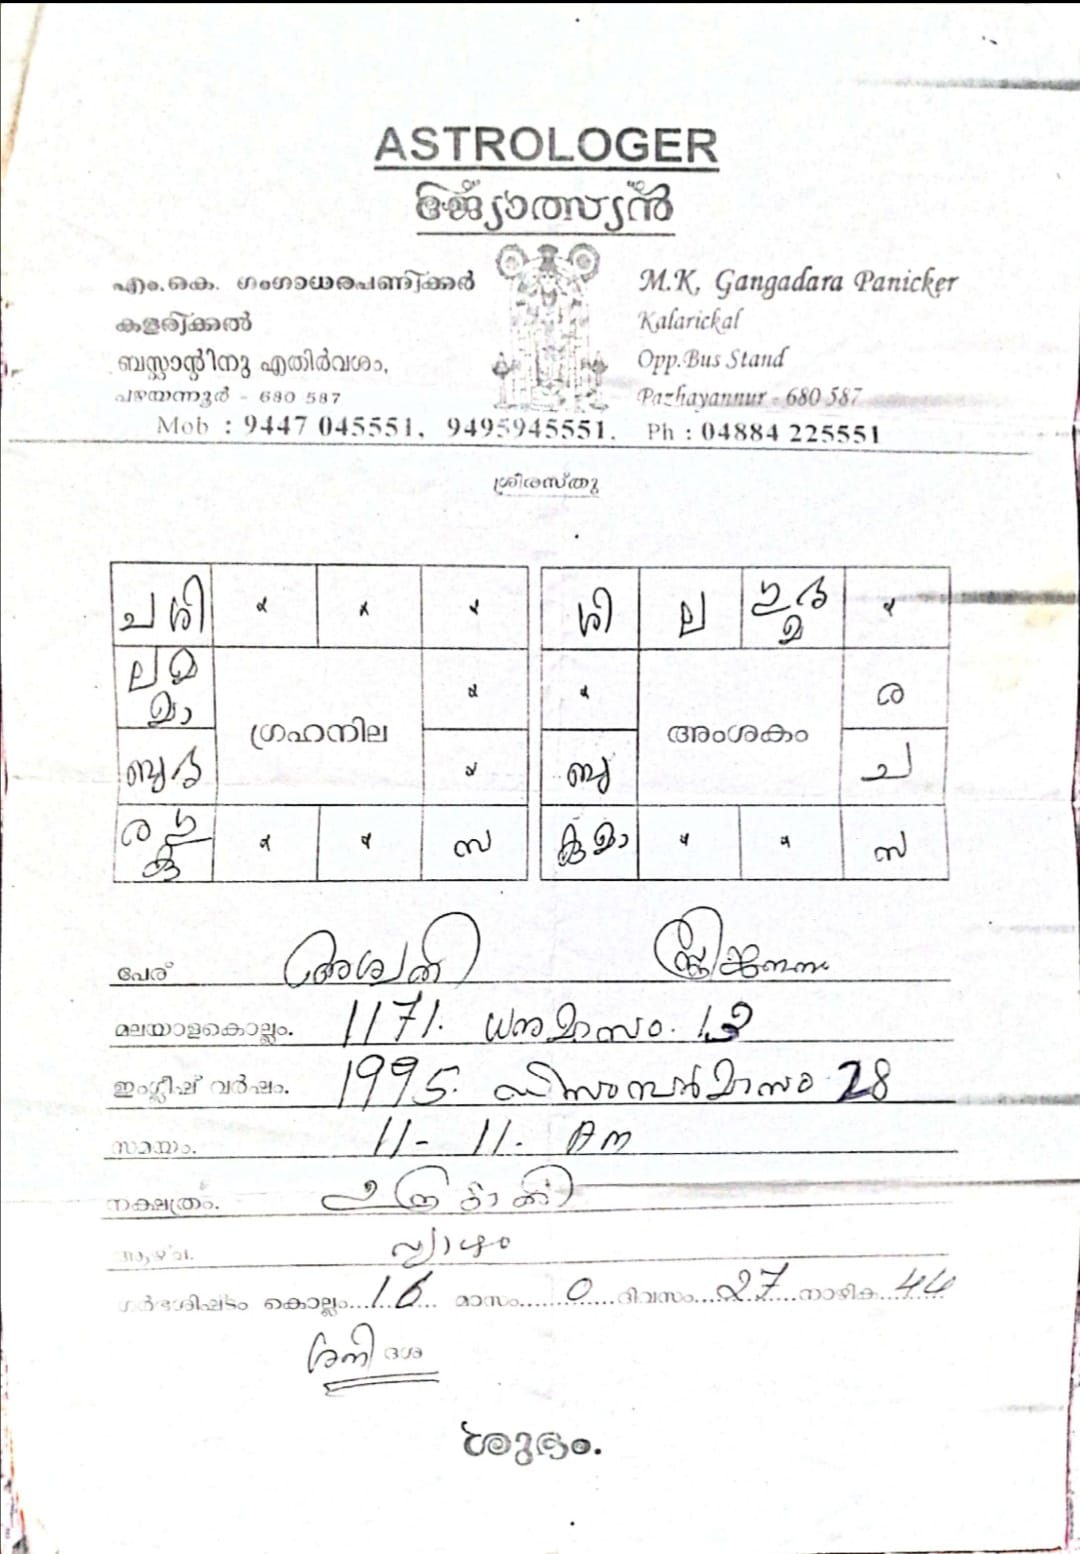 ASTROLOGER
ജ്യോത്സ്യൻ
എം.കെ. ഗംഗാധരപണിക്കർ
കളരിക്കൽ
ബസ്സ്റ്റാന്റിനു എതിർവശം,
പഴയന്നൂർ - 680 587
M.K. Gangadara Panicker
Kalarickal
Opp.Bus Stand
Pazhayannur - 680 587
Mob : 9447 045551, 9495945551. Ph : 04884 225551
ശ്രീരസ്തു
ച ശി x x x
ല മ മാ
x
ഗ്രഹനില
ബു
x
ര കു x x സ
ശി ല x
x
ര
അംശകം
ബു
ച
കു മാ x x സ
പേര് അശ്വതി
മലയാളകൊല്ലം. 1171. ധനുമാസം. 13
ഇംഗ്ലീഷ് വർഷം. 1995. ഡിസംബർമാസം 28
സമയം. 11- 11. Am
നക്ഷത്രം. ഉത്രട്ടാതി
ആഴ്ച. വ്യാഴം
ഗർഭശിഷ്ടം കൊല്ലം...16... മാസം......0......ദിവസം...27...നാഴിക...44
ശനി ദശ
ശുഭം.